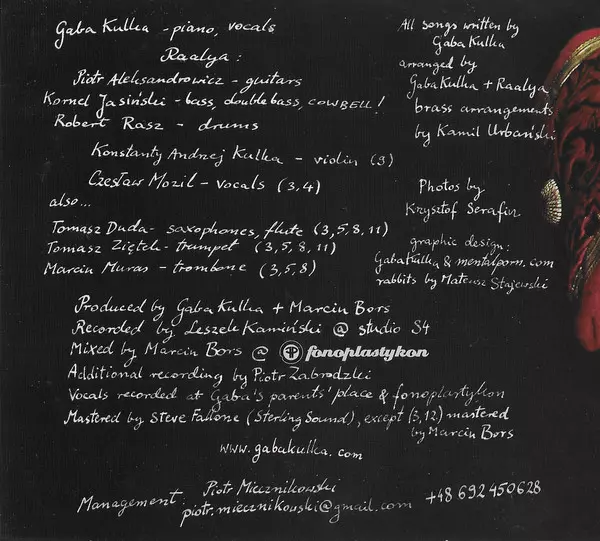 Gaba Kulka - piano, vocals
Raalya:
Piotr Aleksandrowicz - guitars
Kornel Jasiński - bass, double bass, COWBELL!
Robert Rasz - drums
Konstanty Andrzej Kulka - violin (9)
Czesław Mozil - vocals (3,4)
also...
Tomasz Duda - saxophones, flute (3,5,8,11)
Tomasz Ziętek - trumpet (3,5,8,11)
Marcin Muras - trombone (3,5,8)
All songs written by
Gaba Kulka
arranged by
Gaba Kulka + Raalya
brass arrangements
by Kamil Urbański
Photos by
Krzysztof Serafin
graphic design:
Gaba Kulka & mentalporn.com
rabbits by Mateusz Stajewski
Produced by Gaba Kulka + Marcin Bors
Recorded by Leszek Kamiński @ studio S4
Mixed by Marcin Bors @ fonoplastykon
Additional recording by Piotr Zabrodzki
Vocals recorded at Gaba's parents' place & fonoplastykon
Mastered by Steve Fallone (Sterling Sound), except (3,12) mastered
by Marcin Bors
www.gabakulka.com
Management: Piotr Miecznikowski
piotr.miecznikowski@gmail.com +48 692 450 628